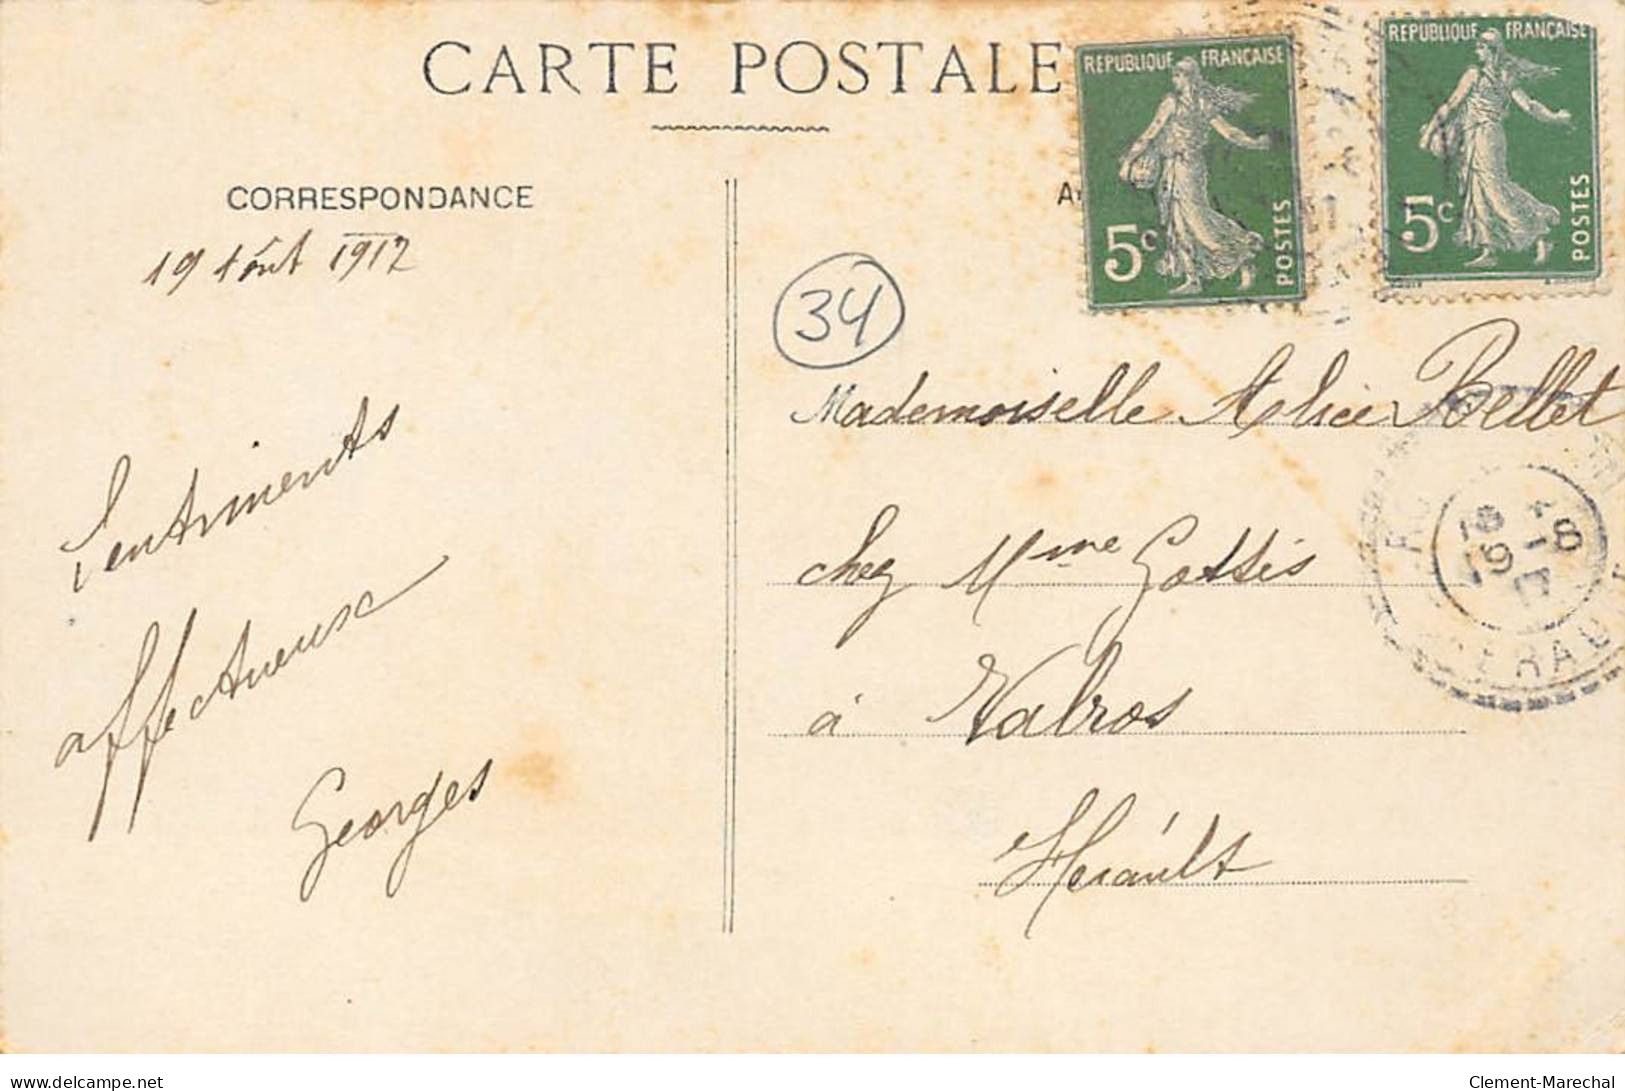 CARTE POSTALE
REPUBLIQUE FRANÇAISE
5c POSTES
REPUBLIQUE FRANÇAISE
5c POSTES
CORRESPONDANCE
19 Août 1917
34
Sentiments
affectueux
Georges
Mademoiselle Alice Bellet
chez Mme Gottis
à Valros
Hérault
18
19 - 8
17
HERAULT
www.delcampe.net
Clement-Marechal